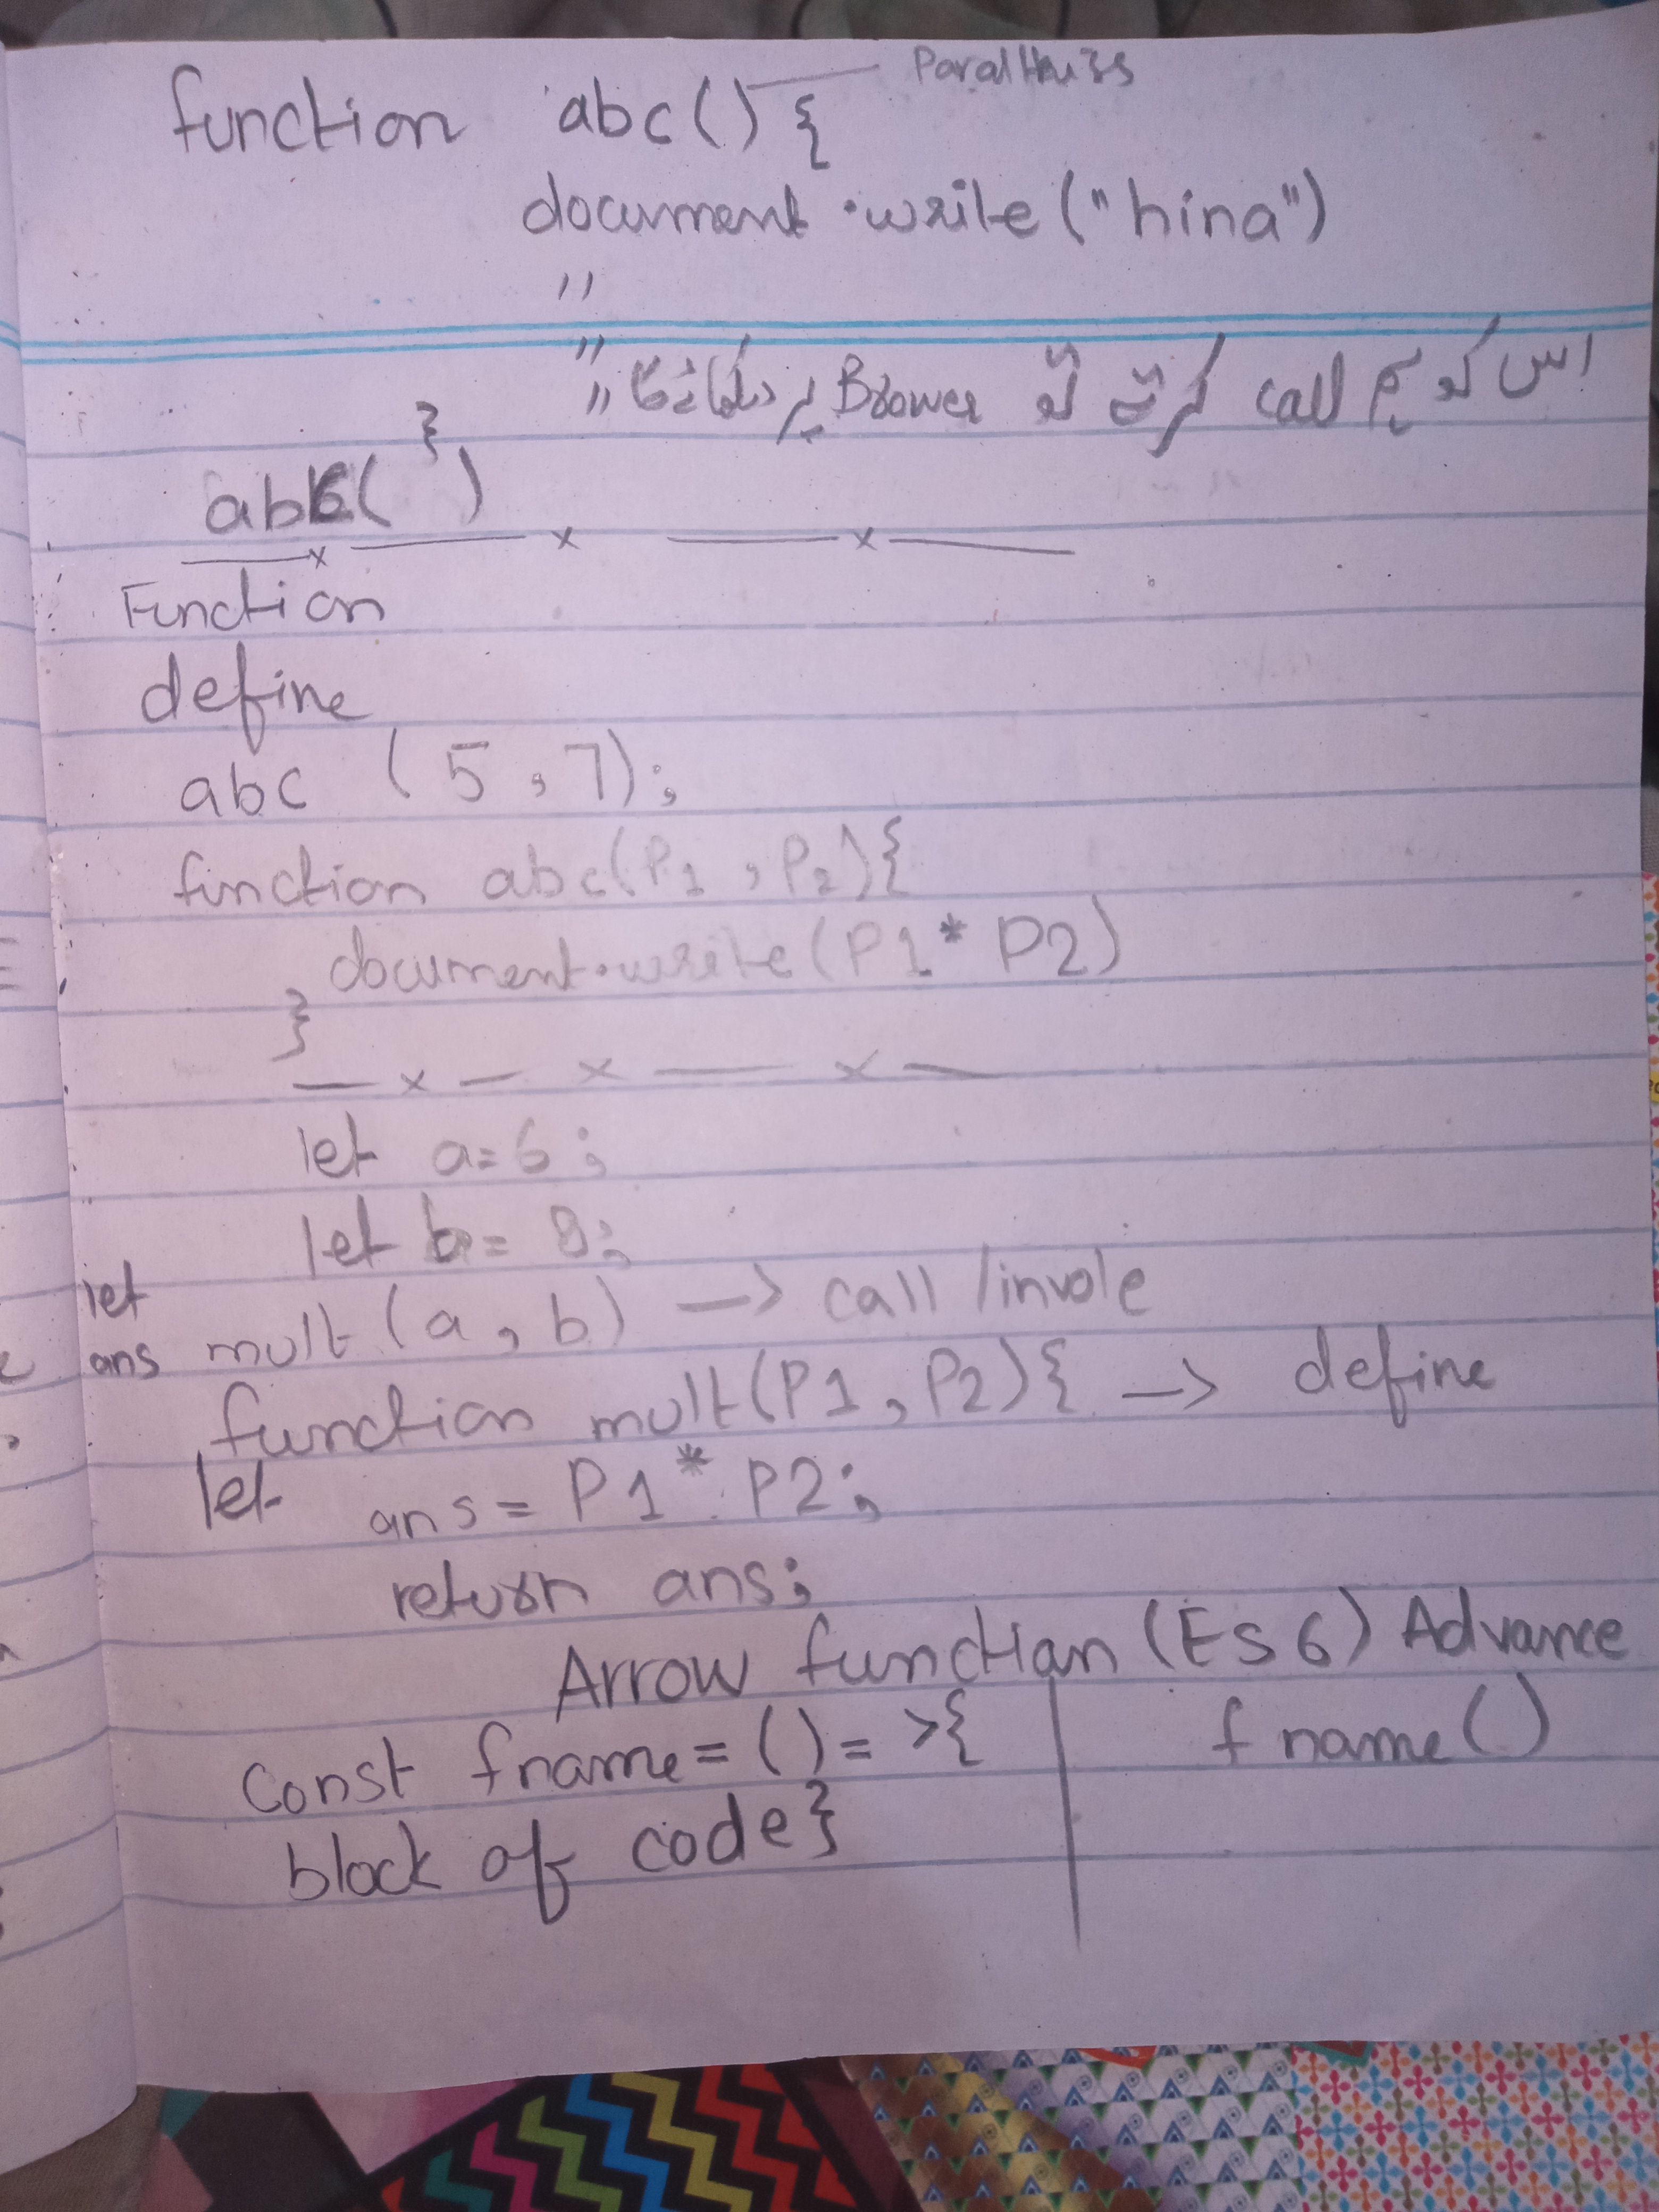 function abc() {
document.write("hina")
"
"
اس کو ہم call کرتے تو Brower پر دیکھائے گا "
}
abc( )
Function
define
abc (5,7);
function abc(P1, P2){
document.write(P1* P2)
}
let a=6;
let b= 8;
let
ans mult(a, b) -> call/invole
function mult(P1, P2){ -> define
let ans = P1* P2;
return ans;
Arrow function (Es6) Advance
const fname = () = >{
block of code}
f name()